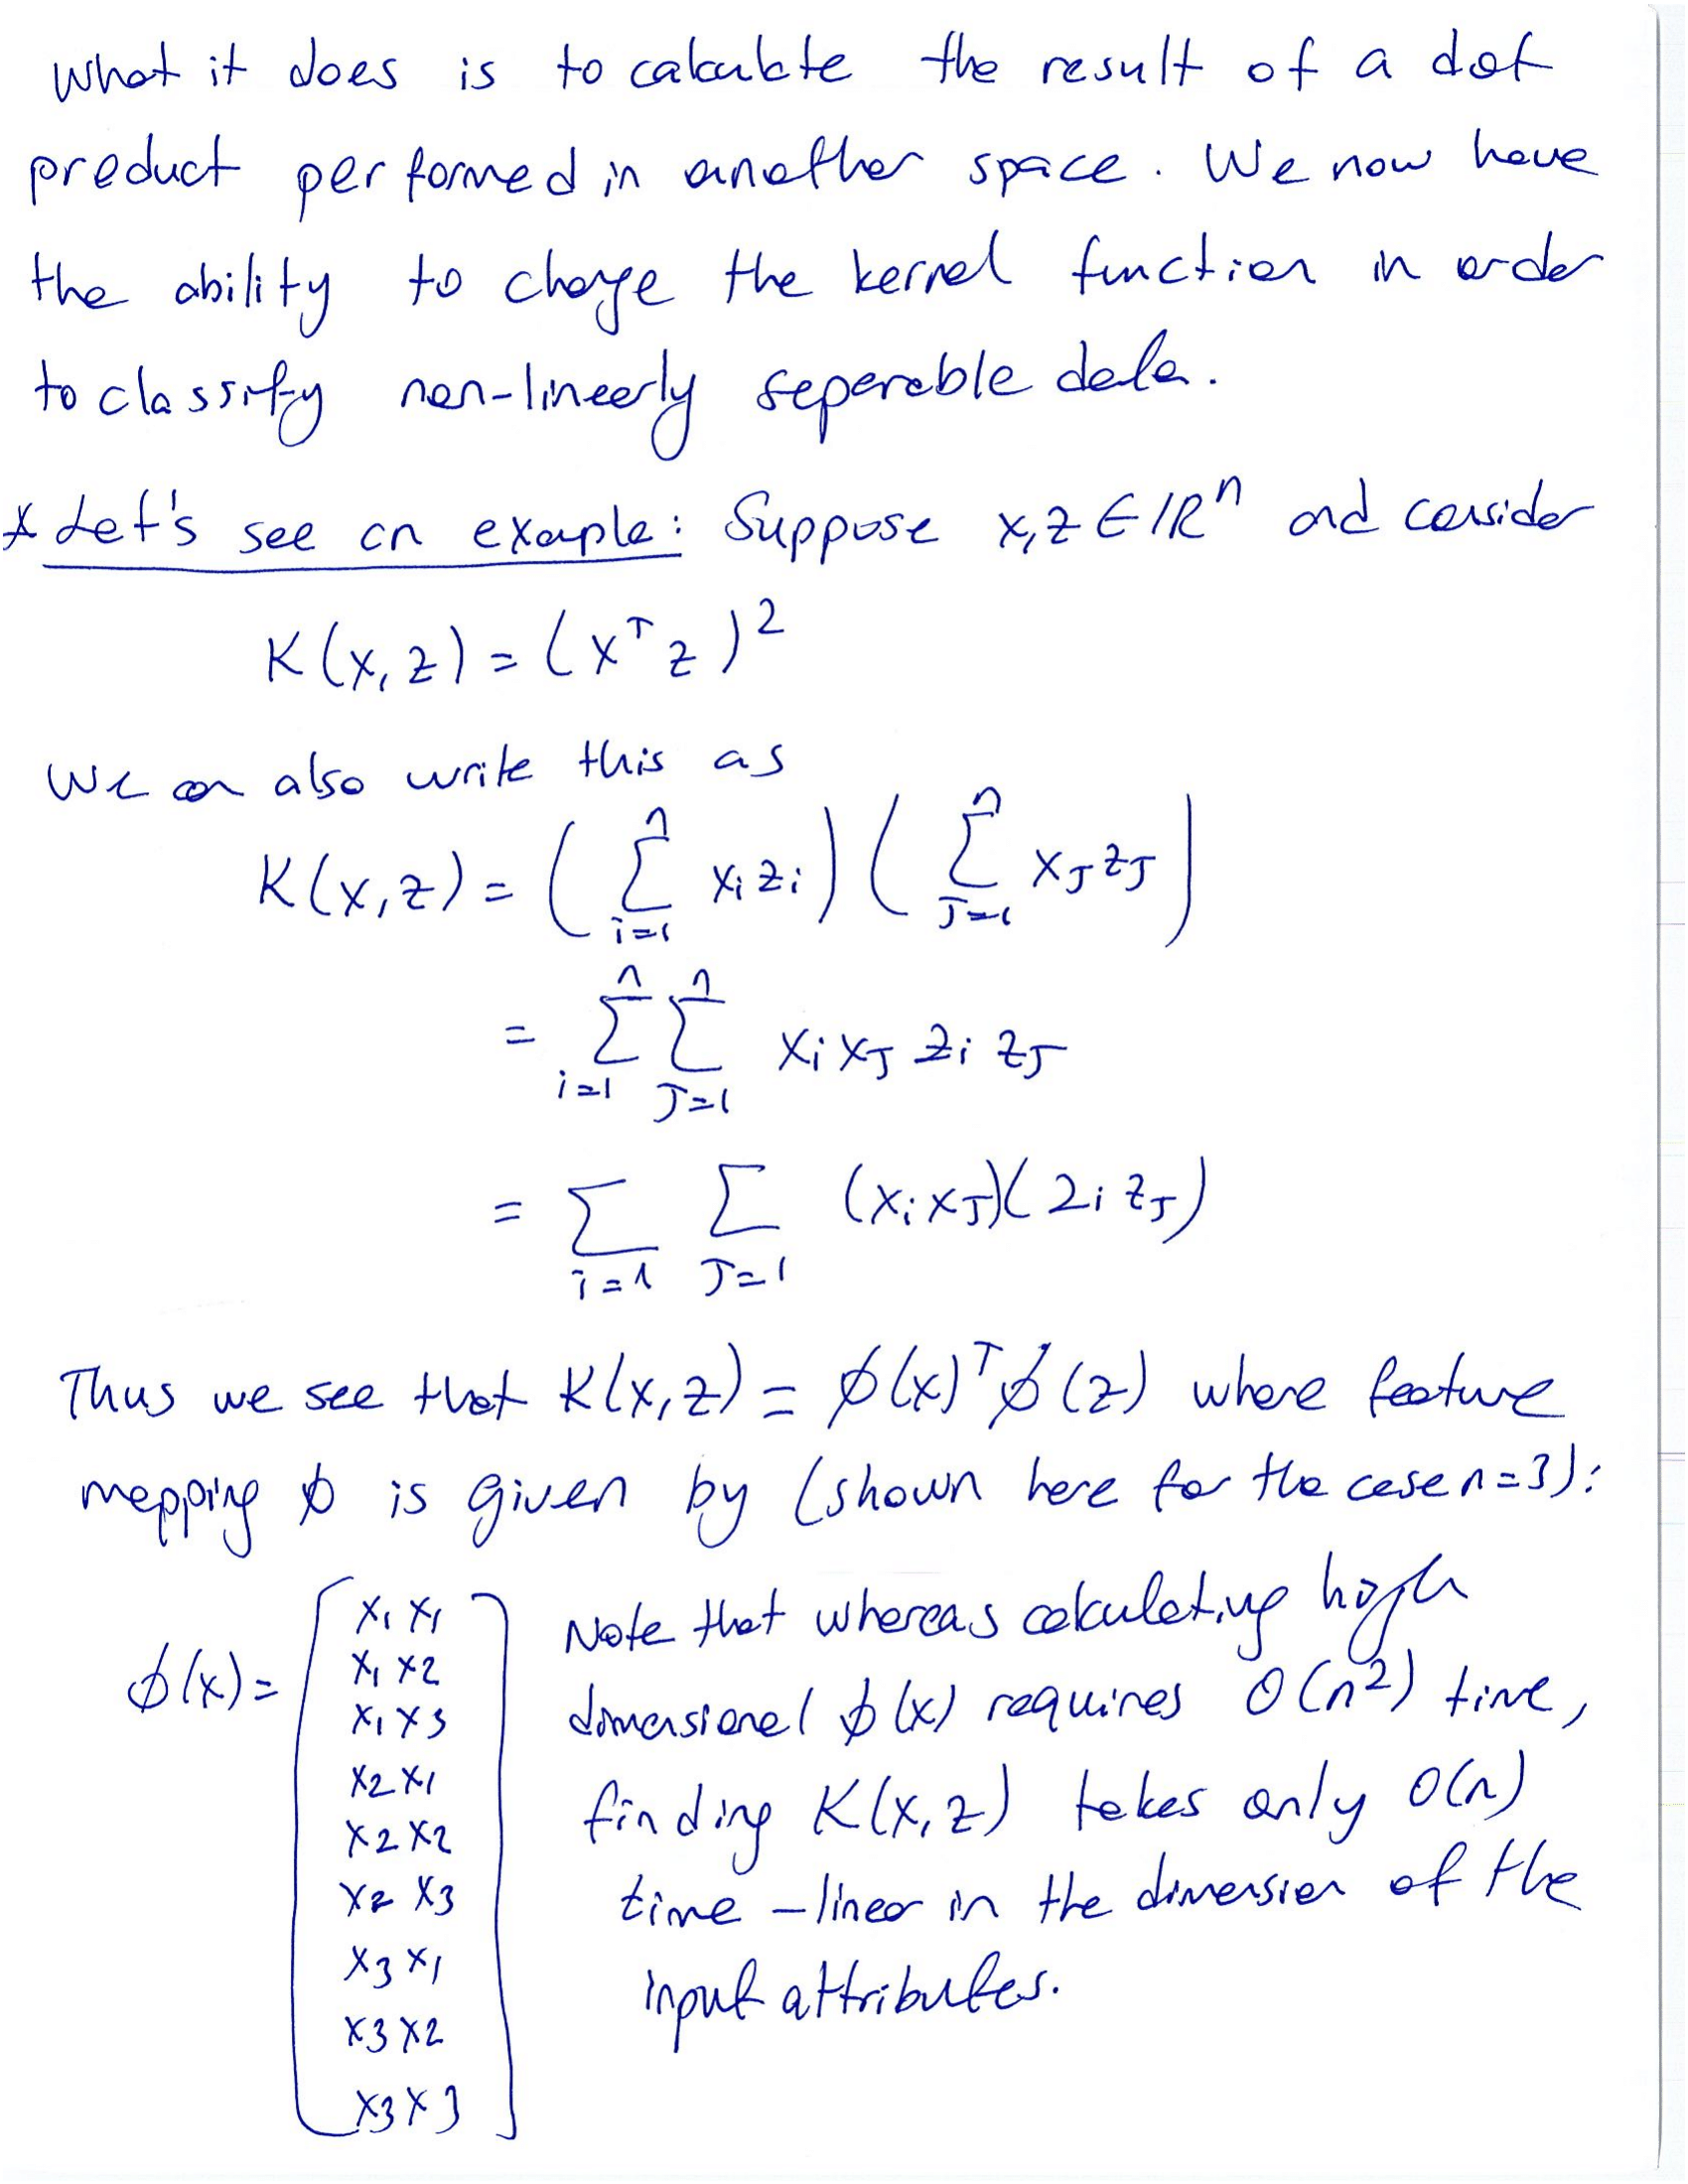 What it does is to calculate the result of a dot
product performed in another space. We now have
the ability to change the kernel function in order
to classify non-linearly seperable data.
* Let's see an example: Suppose x, z ∈ ℝⁿ and consider
K(x, z) = (xᵀz)²
We can also write this as
K(x, z) = (∑ᵢ₌₁ⁿ xᵢ zᵢ)(∑ⱼ₌₁ⁿ xⱼ zⱼ)
= ∑ᵢ₌₁ⁿ ∑ⱼ₌₁ⁿ xᵢ xⱼ zᵢ zⱼ
= ∑ᵢ₌₁ ∑ⱼ₌₁ (xᵢ xⱼ)(zᵢ zⱼ)
Thus we see that K(x, z) = ϕ(x)ᵀϕ(z) where feature
mapping ϕ is given by (shown here for the case n=3):
ϕ(x) =
x₁ x₁
x₁ x₂
x₁ x₃
x₂ x₁
x₂ x₂
x₂ x₃
x₃ x₁
x₃ x₂
x₃ x₃
Note that whereas calculating high
dimensional ϕ(x) requires O(n²) time,
finding K(x, z) takes only O(n)
time - linear in the dimension of the
input attributes.